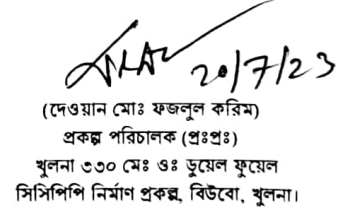 20/7/23
(দেওয়ান মোঃ ফজলুল করিম)
প্রকল্প পরিচালক (প্রঃপ্রঃ)
খুলনা ৩৩০ মেঃ ওঃ ডুয়েল ফুয়েল
সিসিপিপি নির্মাণ প্রকল্প, বিউবো, খুলনা।